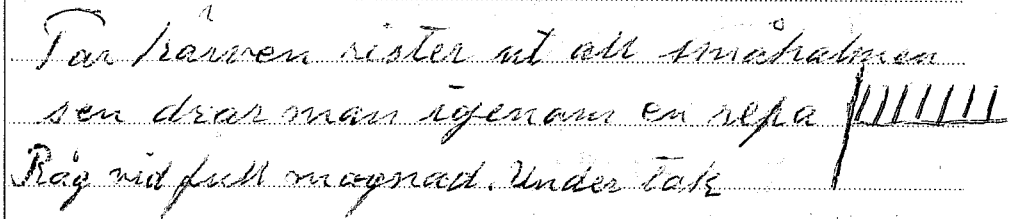 Tar kärven rister ut all småhalmen
sen drar man igenom en repa
Råg vid full mognad. Under tak